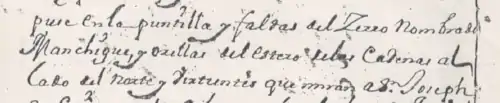 puse en la puntilla y faldas del Zerro Nombrado
Manchigue, y orillas del estero de las Cadenas al
lado del norte y Vertientes que miran a Sn. Joseph